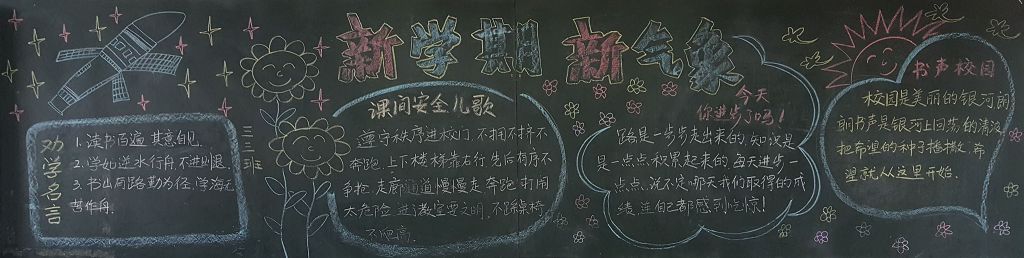 新学期 新气象
劝学名言
1. 读书百遍 其意自见.
2. 学如逆水行舟 不进则退
3. 书山有路勤为径 学海无
苦作舟.
三三班
课间安全儿歌
遵守秩序进校门 不拥不挤不
奔跑 上下楼梯靠右行 先后有序不
争抢 走廊通道慢慢走 奔跑打闹
太危险 进了教室要文明 不踩桌椅
不爬高
今天
你进步了吗!
路是一步步走出来的 知识是
是一点点积累起来的 每天进步一
点点 说不定哪天我们取得的成
绩 连自己都感到吃惊!
书声校园
校园是美丽的银河 雨
朗书声是银河上回荡的清波
把希望的种子播撒. 希
望就从这里开始.